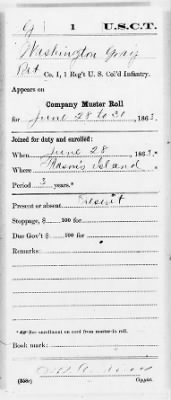 G 1 U.S.C.T.
Washington Gray
Pvt Co. I, 1 Reg't U. S. Col'd Infantry.
Appears on
Company Muster Roll
for June 28 to 30, 1863.
Joined for duty and enrolled:
When June 28, 1863.*
Where Mason's Island
Period 3 years.*
Present or absent Present
Stoppage, $ 100 for
Due Gov't $ 100 for
Remarks:
*See enrollment on card from muster-in roll.
Book mark:
(358c) Copyist.